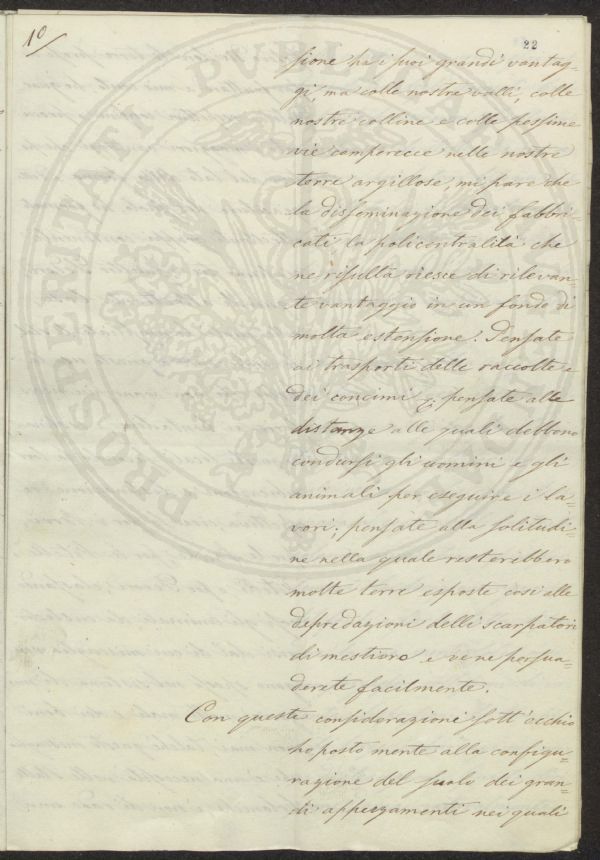 10
22
sione ha i suoi grandi vantag=
gi, ma colle nostre valli, colle
nostre colline e colle pessime
vie comporecce nelle nostre
terre argillose, mi pare che
la disseminazione dei fabbri=
cati la policentralità che
ne risulta riesce di rilevan=
te vantaggio in un fondo di
molta estensione. Pensate
ai trasporti delle raccolte e
dei concimi, pensate alle
distanze alle quali debbono
condursi gli uomini e gli
animali per eseguire i la=
vori; pensate alla solitudi=
ne nella quale resterebbero
molte terre esposte così alle
depredazioni delli scarpatori
di mestiere e ve ne persua=
derete facilmente.
Con queste considerazioni sott'occhio
ho posto mente alla configu=
razione del suolo dei gran=
di appezzamenti nei quali
PROSPERITATI PVBLICAE